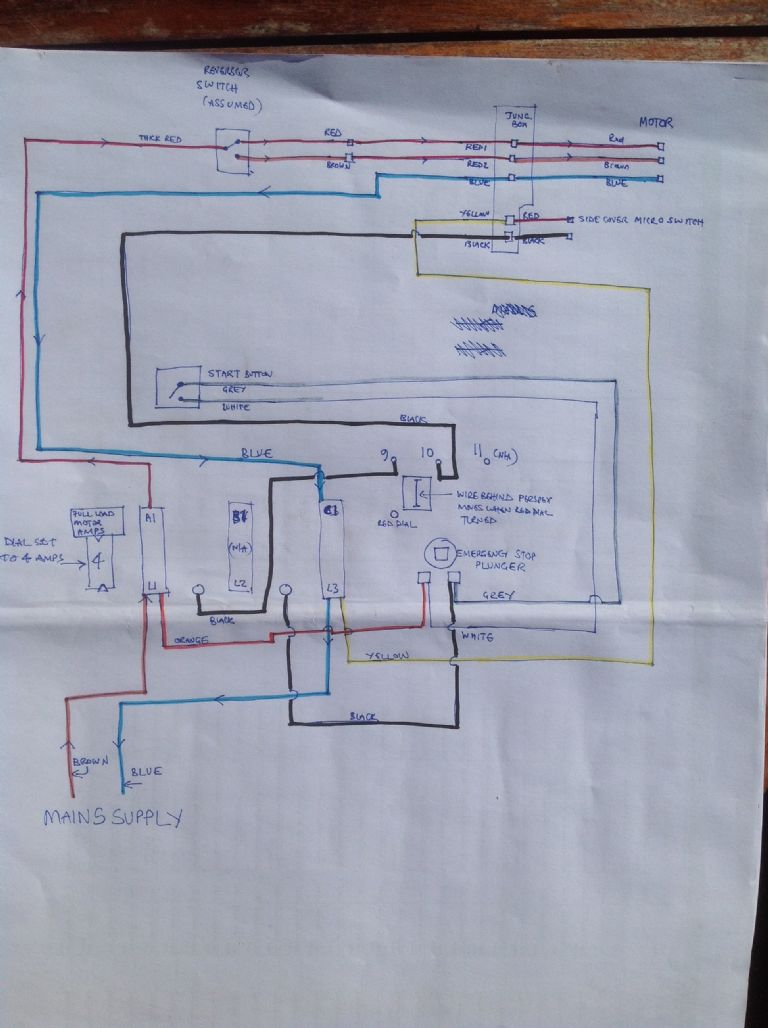 REVERSER
SWITCH
(ASSUMED)
JUNC
BOX
MOTOR
THICK RED
RED
RED1
Red
BROWN
RED2
Brown
BLUE
BLUE
YELLOW
RED
SIDE COVER MICRO SWITCH
BLACK
BLACK
START BUTTON
GREY
WHITE
BLACK
BLUE
9
10
11 (N/A)
WIRE BEHIND PERSPEX
MOVES WHEN RED DIAL
TURNED
RED DIAL
FULL LOAD
MOTOR
AMPS
A1
DIAL SET
TO 4 AMPS
4
(N/A)
EMERGENCY STOP
PLUNGER
L1
L2
L3
GREY
BLACK
ORANGE
WHITE
YELLOW
BLACK
BROWN
BLUE
MAINS SUPPLY